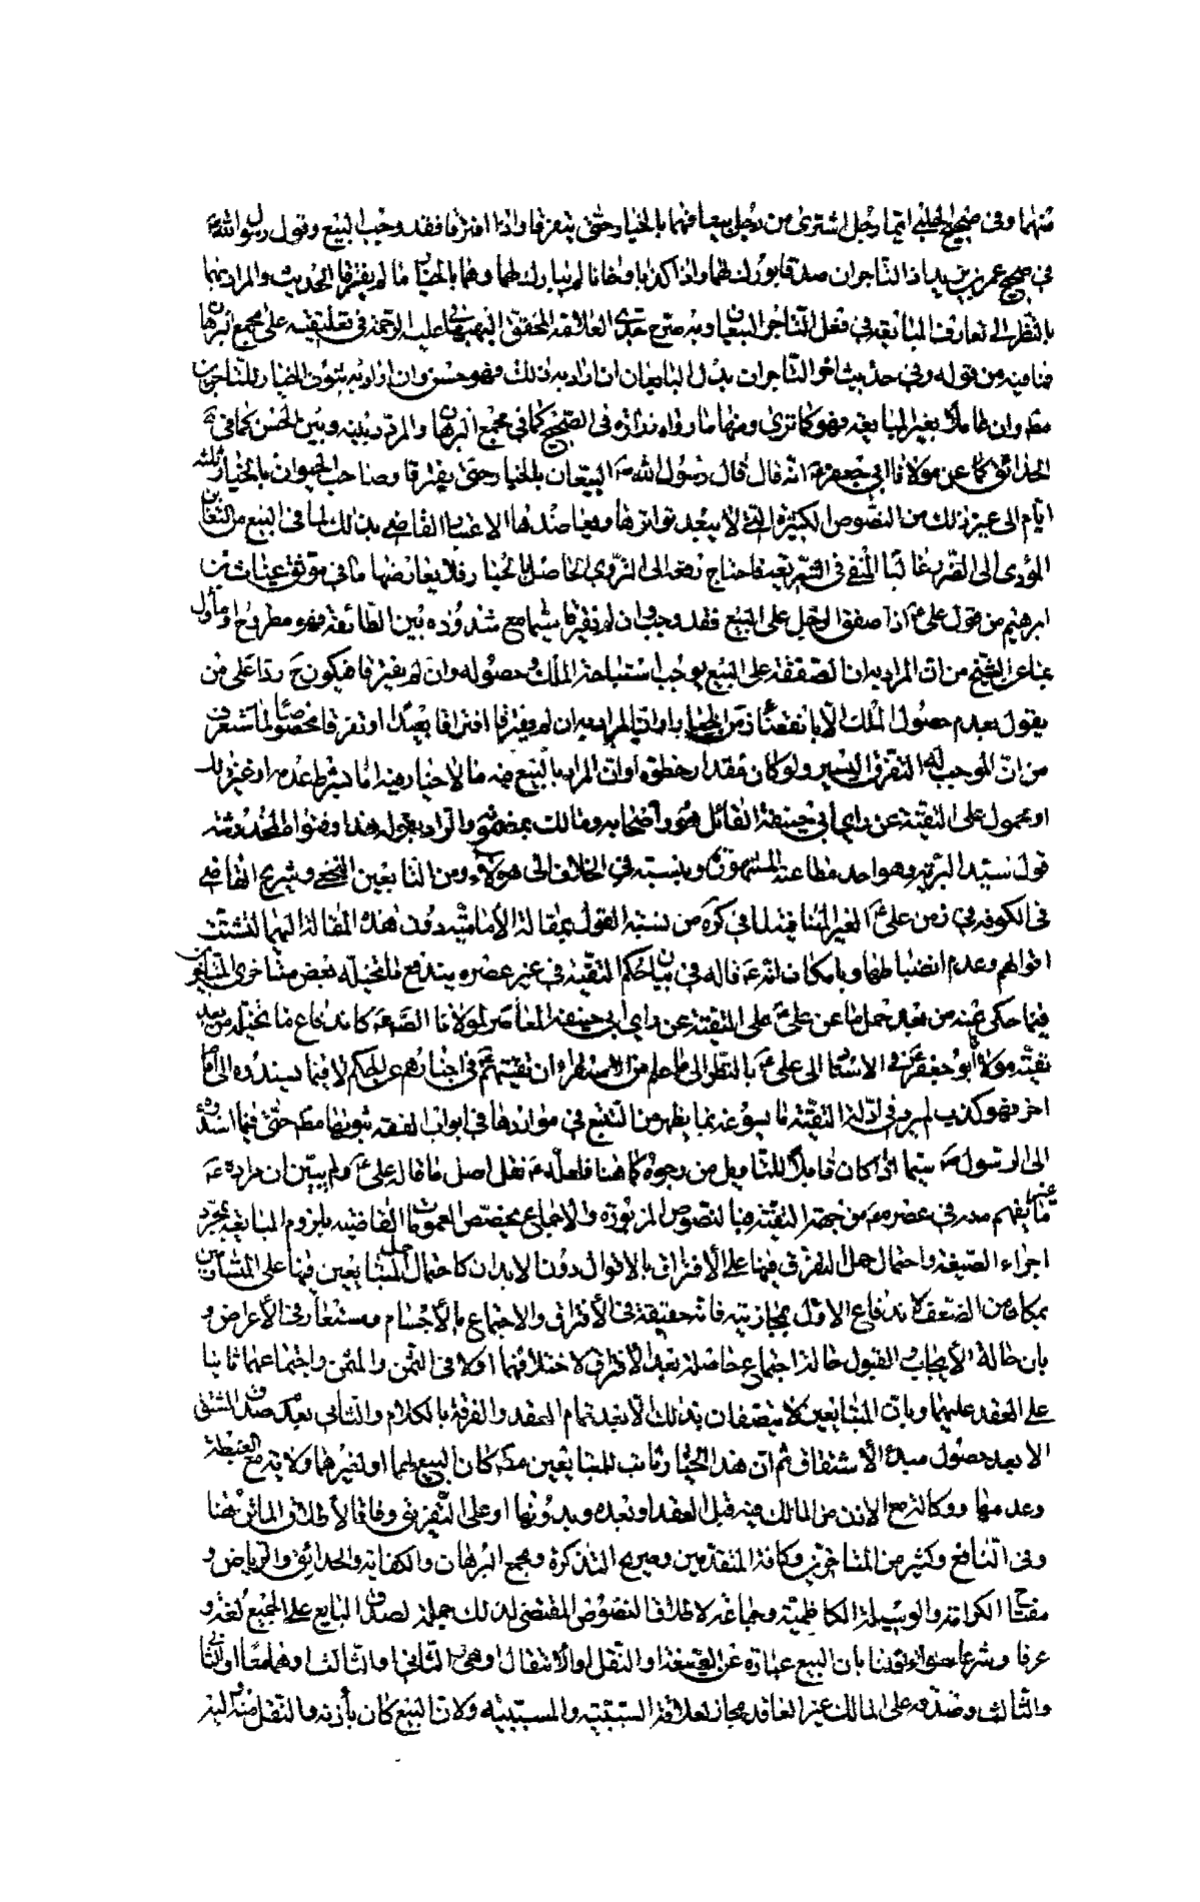 منهما وفى صحيح الحلبي ايما رجل اشترى من رجل بيعا فهما بالخيار حتى يتفرقا واذا افترقا فقد وجب البيع وقول رسول الله ص
في صحيح عمر بن يزيد اذ التاجران صدقا بورك لهما واذا كذبا وخانا لم يبارك لهما وهما بالخيار ما لم يفترقا الحديث والمراد بهما
بالنظر الى تعارف المبايعة في فعل التاجر البيعان وبه صرح جدى العلامة المحقق البهبهاني اعلى الرحمة في تعليقته على مجمع البرهان
فما فيه من قوله وفى حديث اخر التاجران بدل البايعان ان اراد به ذلك فهو حسن وان اراد به ثبوت الخيار للتاجرين
مط وان عاملا بغير المبايعة فهو كما ترى ومنها ما رواه زرارة فى الصحيح كما في مجمع البرهان والمردد بينه وبين الحسن كما في
الحدائق كما عن مولانا ابي جعفر ع انه قال قال رسول الله ص البيعان بالخيار حتى يفترقا وصاحب الحيوان بالخيار ثلثة
ايام الى غير ذلك من النصوص الكثيرة التي لا يبعد تواترها ويعاضدها الاعتبار القاضي بذلك لما فى البيع من التغابن
المؤدى الى الضرر غالبا المنفى فى الشريعة فاحتاج رفعه الى التروى الحاصل بالخيار فلا يعارضها ما في موثق غياث بن
ابرهيم من قول على ع اذا صفق الرجل على البيع فقد وجب وان لم يفترقا سيما مع شذوذه بين الطائفة فهو مطروح او مأول
بما عن الشيخ من ان المراد به ان الصفقة على البيع يوجب استباحة الملك وحصوله وان لم يفترقا فيكون ح ردا على من
يقول بعدم حصول الملك الا بانقضاء زمن الخيار او ان المراد به ان لم يفترقا افتراقا بعيدا او تفرقا مخصوصا لما ستعرف
من ان الموجب له التفرق اليسير ولو كان مقدار خطوة او ان المراد بالبيع فيه ما لا خيار فيه اما بشرط عدمه او غير ذلك
او محمول على التقية عن راي ابي حنيفة القائل هو واصحابه ومالك بمضمونه والراد بقوله هذا وفتواه المخدوشة
قول سيد البرية وهو احد مطاعنه المشهورة ونسبته في الخلاف الى هؤلاء ومن التابعين النخعي وشريح القاضي
فى الكوفة في زمن على ع الغير المنافية لما في كره من نسبة القول بمقالة الأمامية دون هذه المقالة اليهما لتشتت
اقوالهم وعدم انضباطها وبامكان انه ع قاله فى بيان حكم التقية فى غير عصره يندفع ما تخيله بعض متأخرى المتأخرين
فيما حكى عنه من بعد حمل ما عن على ع على التقية عن راي ابي حنيفة المعاصر لمولانا الصادق ع كاندفاع ما تخيله من بعد
تقية مولانا أبو جعفر ع في الاسناد الى على ع بالنظر الى ما علم من الاستقراء ان تقيتهم ع في اخبارهم عن الحكم لا فيما يسندوه الى امام
اخر فهو كذب لم يرد في ادلة التقية ما يسوغه بما يظهر من التتبع في مواردها في ابواب الفقه ثبوتها مط حتى فيما اسندوه
الى الرسول ص سيما اذا كان قابلا للتأويل من وجوه كما هنا فلعله ع نقل اصل ما قاله على ع ولم يبين ان مراده ع
ما يفهم منه في عصره ع من جهة التقية فبالنصوص المزبورة والاجماع يخصص العمومات القاضية بلزوم المبايعة بمجرد
اجراء الصيغة واحتمال حمل التفرق فيها على الافتراق بالاقوال دون الابدان كاحتمال حمل المتبايعين فيها على المتساومين
بمكان من الضعف لاندفاع الاول بمجازيته فانه حقيقة في الأفتراق والاجتماع بالأجسام ومستعار في الأعراض و
بان حالة الأيجاب والقبول حالة اجتماع حاصلة بعد الافتراق لاختلافهما اولا فى الثمن والمثمن واجتماعهما ثانيا
على العقد عليهما وبان المتبايعين لا يتصفان بذلك الا بعد تمام العقد والفرقة بالكلام والثاني بعدم صدق المشتق
الا بعد حصول مبدء الأشتقاق ثم ان هذا الخيار ثابت للمتبايعين مط كان البيع لهما او لغيرهما ولاية مع الغبطة
وعدمها ووكالة مع الاذن من المالك فيه قبل العقد او بعده وبدونها او على التفريق وفاقا لأطلاق الماتن هنا
وفى النافع وكثير من المتاخرين وكافة المتقدمين وصريح التذكرة ومجمع البرهان والكفاية والحدائق والرياض و
مفتاح الكرامة والوسيلة الكاظمية وجماعة لاطلاق النصوص المقتضى لذلك جملة لصدق البايع على الجميع لغة و
عرفا وشرعا سواء قلنا بان البيع عبارة عن الصيغة او النقل او الانتقال او هى والثاني او الثالث او هما معا او الثاني
والثالث وصدقه على المالك غير العاقد مجاز لعلاقة السببية والمسببية ولان البيع كان بأذنه والنقل منه واليه